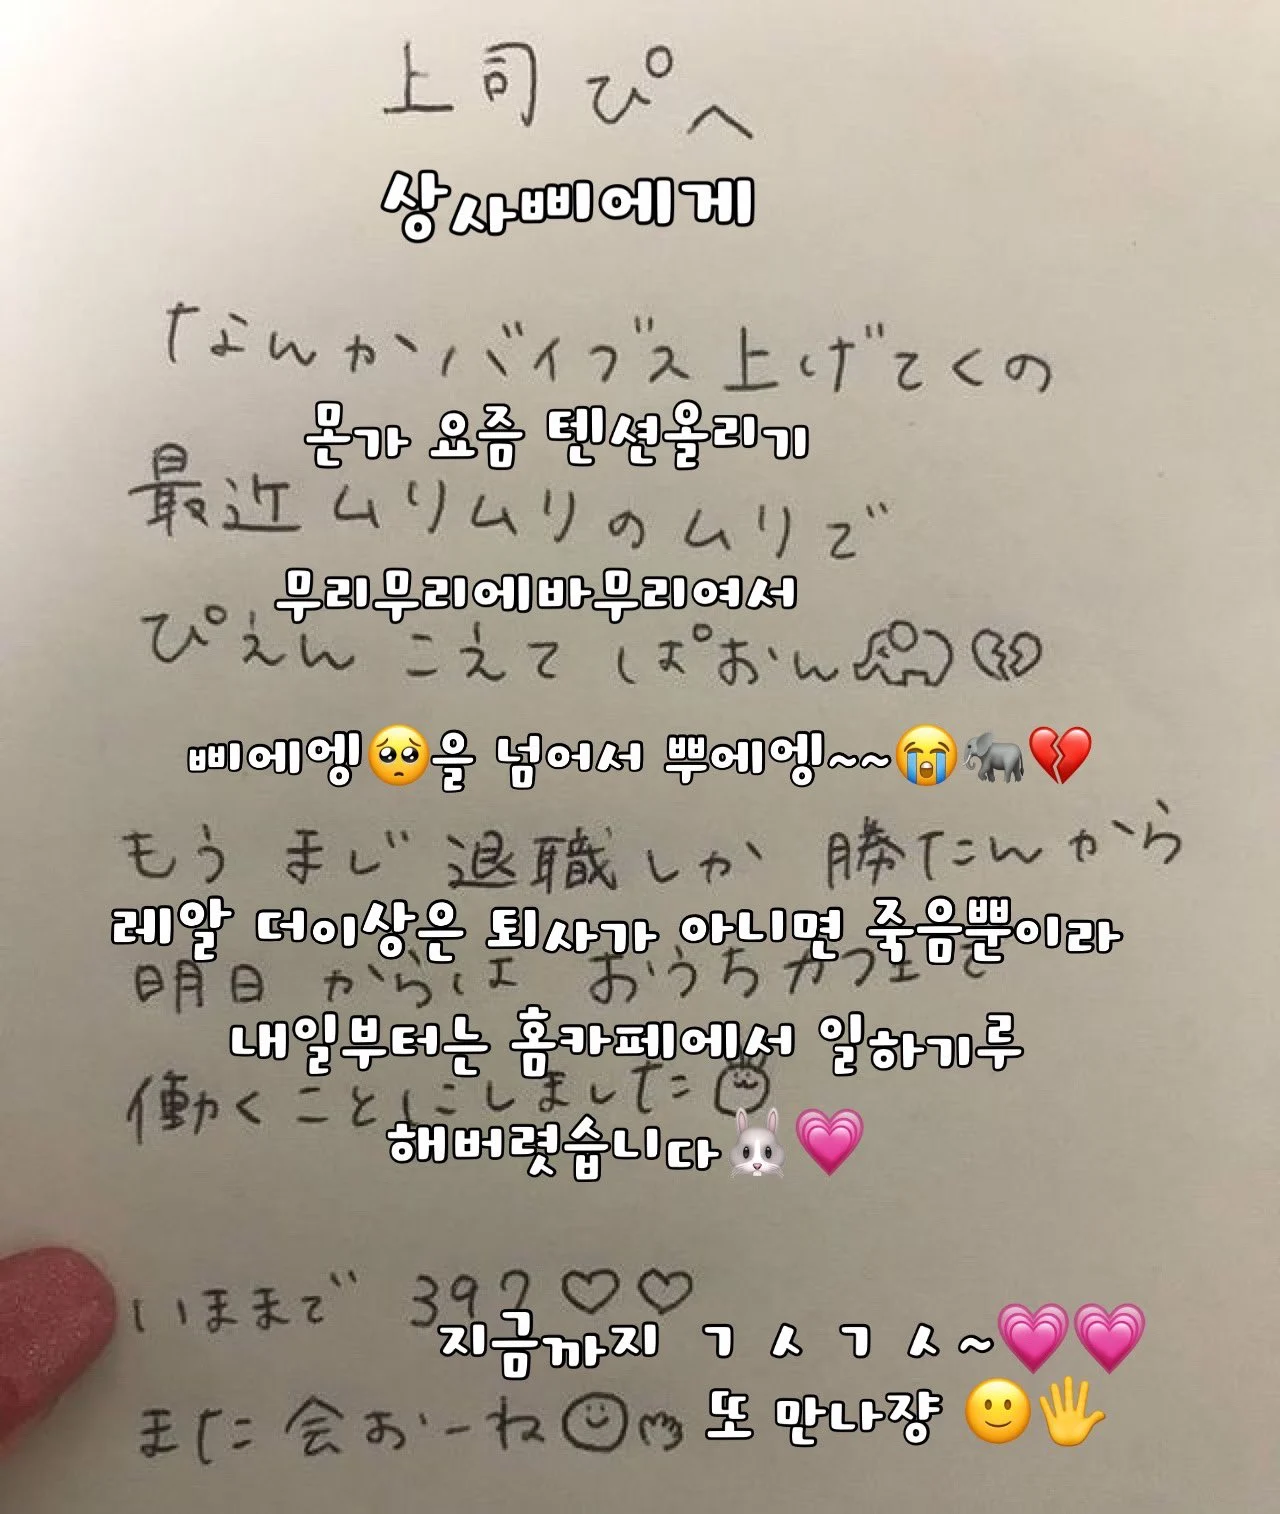 上司ぴへ
상사삐에게
なんかバイブス上げてくの
몬가 요즘 텐션올리기
最近ムリムリのムリで
무리무리에바무리여서
ぴえんこえてぱおん
삐에엥🥺을 넘어서 뿌에엥~~😭🐘💔
もうまじ退職しか勝たんから
레알 더이상은 퇴사가 아니면 죽음뿐이라
明日からはおうちカフェで
내일부터는 홈카페에서 일하기루
働くことにしました
해버렷습니다🐰💗
いままで 39?♡♡
지금까지 ㄱㅅㄱㅅ~💗💗
また会おーね
또 만나쟝 🙂🖐